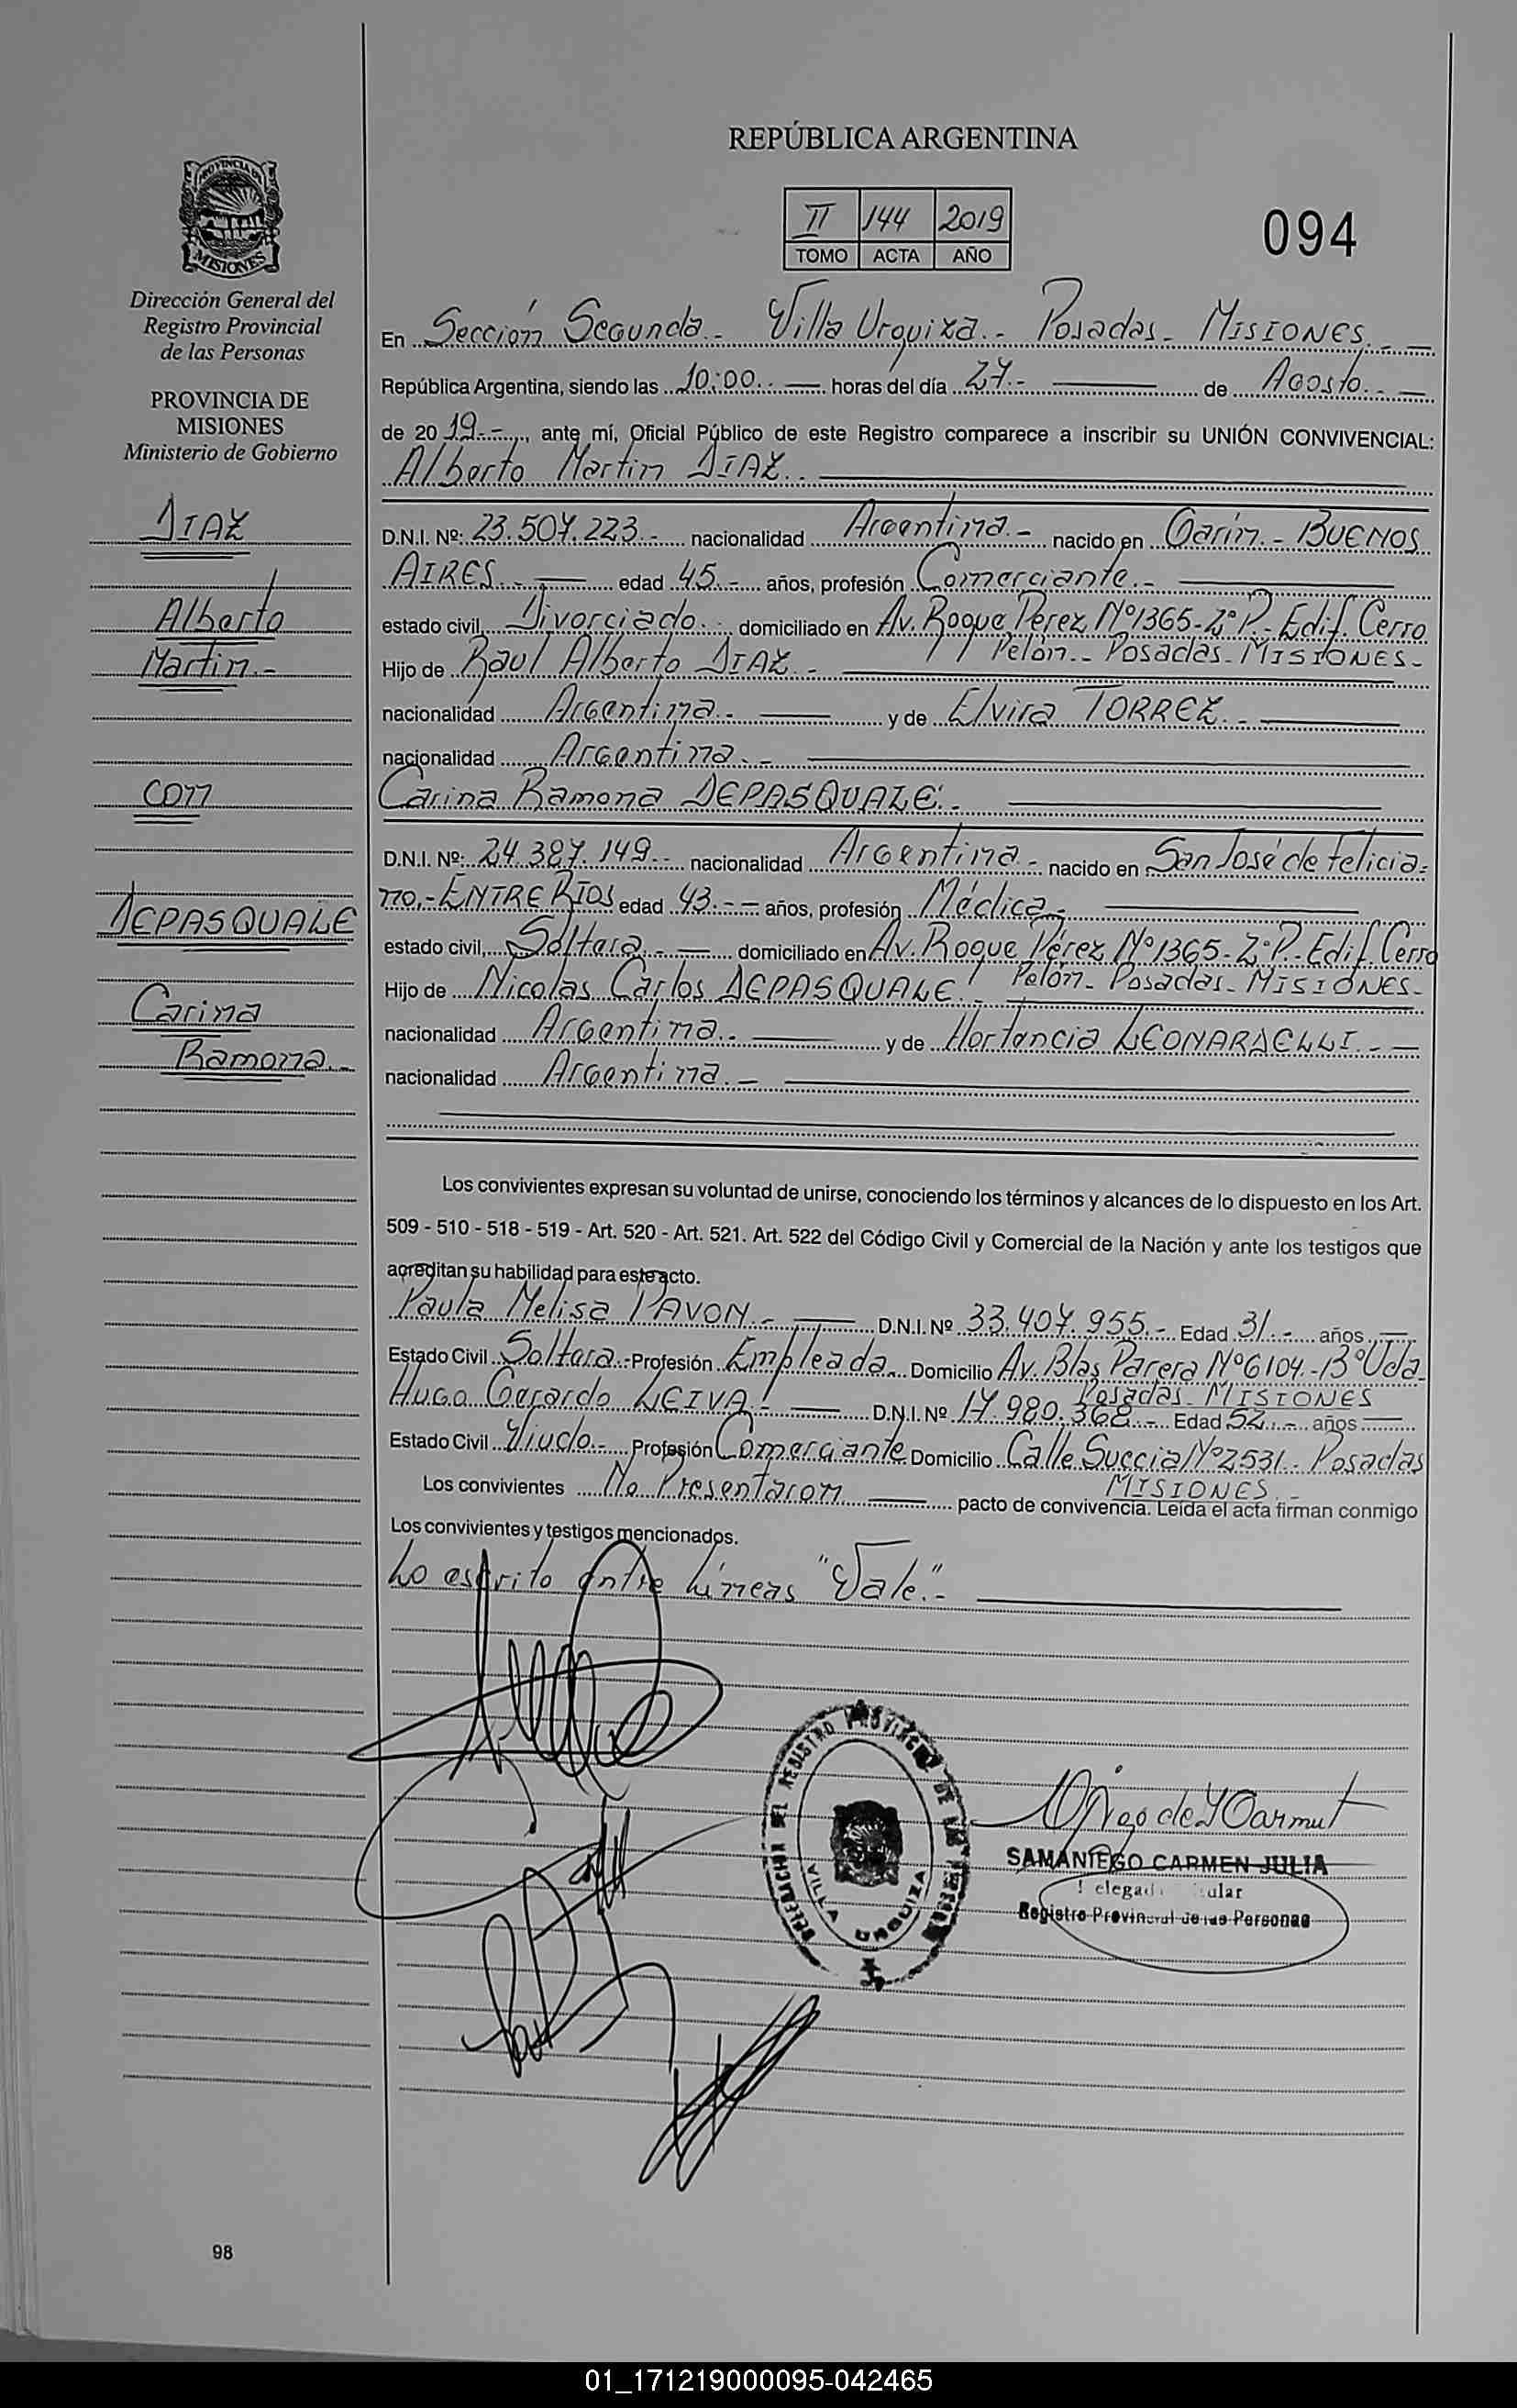 REPÚBLICA ARGENTINA
II 144 2019
TOMO ACTA AÑO
094
PROVINCIA DE
MISIONES
Dirección General del
Registro Provincial
de las Personas
PROVINCIA DE
MISIONES
Ministerio de Gobierno
DIAZ
Alberto
Martin.-
con
DEPASQUALE
Carina
Ramona.-
En Sección Segunda.- Villa Urquiza.- Posadas- MISIONES.-
República Argentina, siendo las 10:00.- horas del día 27.- de Agosto.-
de 2019.-, ante mí, Oficial Público de este Registro comparece a inscribir su UNIÓN CONVIVENCIAL:
Alberto Martin DIAZ.-
D.N.I. Nº: 23.507.223.- nacionalidad Argentina.- nacido en Garín.- BUENOS
AIRES.- edad 45.- años, profesión Comerciante.-
estado civil, Divorciado.- domiciliado en Av. Roque Pérez Nº1365-2º P.- Edif. Cerro
Pelón.- Posadas- MISIONES-
Hijo de Raul Alberto DIAZ.-
nacionalidad Argentina.- y de Elvira TORREZ.-
nacionalidad Argentina.-
Carina Ramona DEPASQUALE.-
D.N.I. Nº: 24.387.149.- nacionalidad Argentina.- nacido en San José de Felicia-
no.- ENTRE RIOS edad 43.- años, profesión Médica.-
estado civil, Soltera.- domiciliado en Av. Roque Pérez Nº1365-2º P.- Edif. Cerro
Pelón- Posadas- MISIONES-
Hijo de Nicolas Carlos DEPASQUALE.-
nacionalidad Argentina.- y de Hortencia LEONARDELLI.-
nacionalidad Argentina.-
Los convivientes expresan su voluntad de unirse, conociendo los términos y alcances de lo dispuesto en los Art.
509 - 510 - 518 - 519 - Art. 520 - Art. 521. Art. 522 del Código Civil y Comercial de la Nación y ante los testigos que
acreditan su habilidad para este acto.
Paula Melisa PAVON.- D.N.I. Nº 33.407.955.- Edad 31.- años
Estado Civil Soltera.- Profesión Empleada.- Domicilio Av. Blas Parera Nº6104.-13º Uda.
Posadas- MISIONES
Hugo Gerardo LEIVA.- D.N.I. Nº 17.980.368.- Edad 52.- años
Estado Civil Viudo.- Profesión Comerciante Domicilio Calle Suecia Nº2531.- Posadas
MISIONES.-
Los convivientes No Presentaron pacto de convivencia. Leída el acta firman conmigo
Los convivientes y testigos mencionados.
Lo escrito entre líneas "Vale".-
DELEGACION DEL REGISTRO PROVINCIAL DE LAS PERSONAS
VILLA URQUIZA
SAMANIEGO CARMEN JULIA
Registro Provincial de las Personas
98
01_171219000095-042465